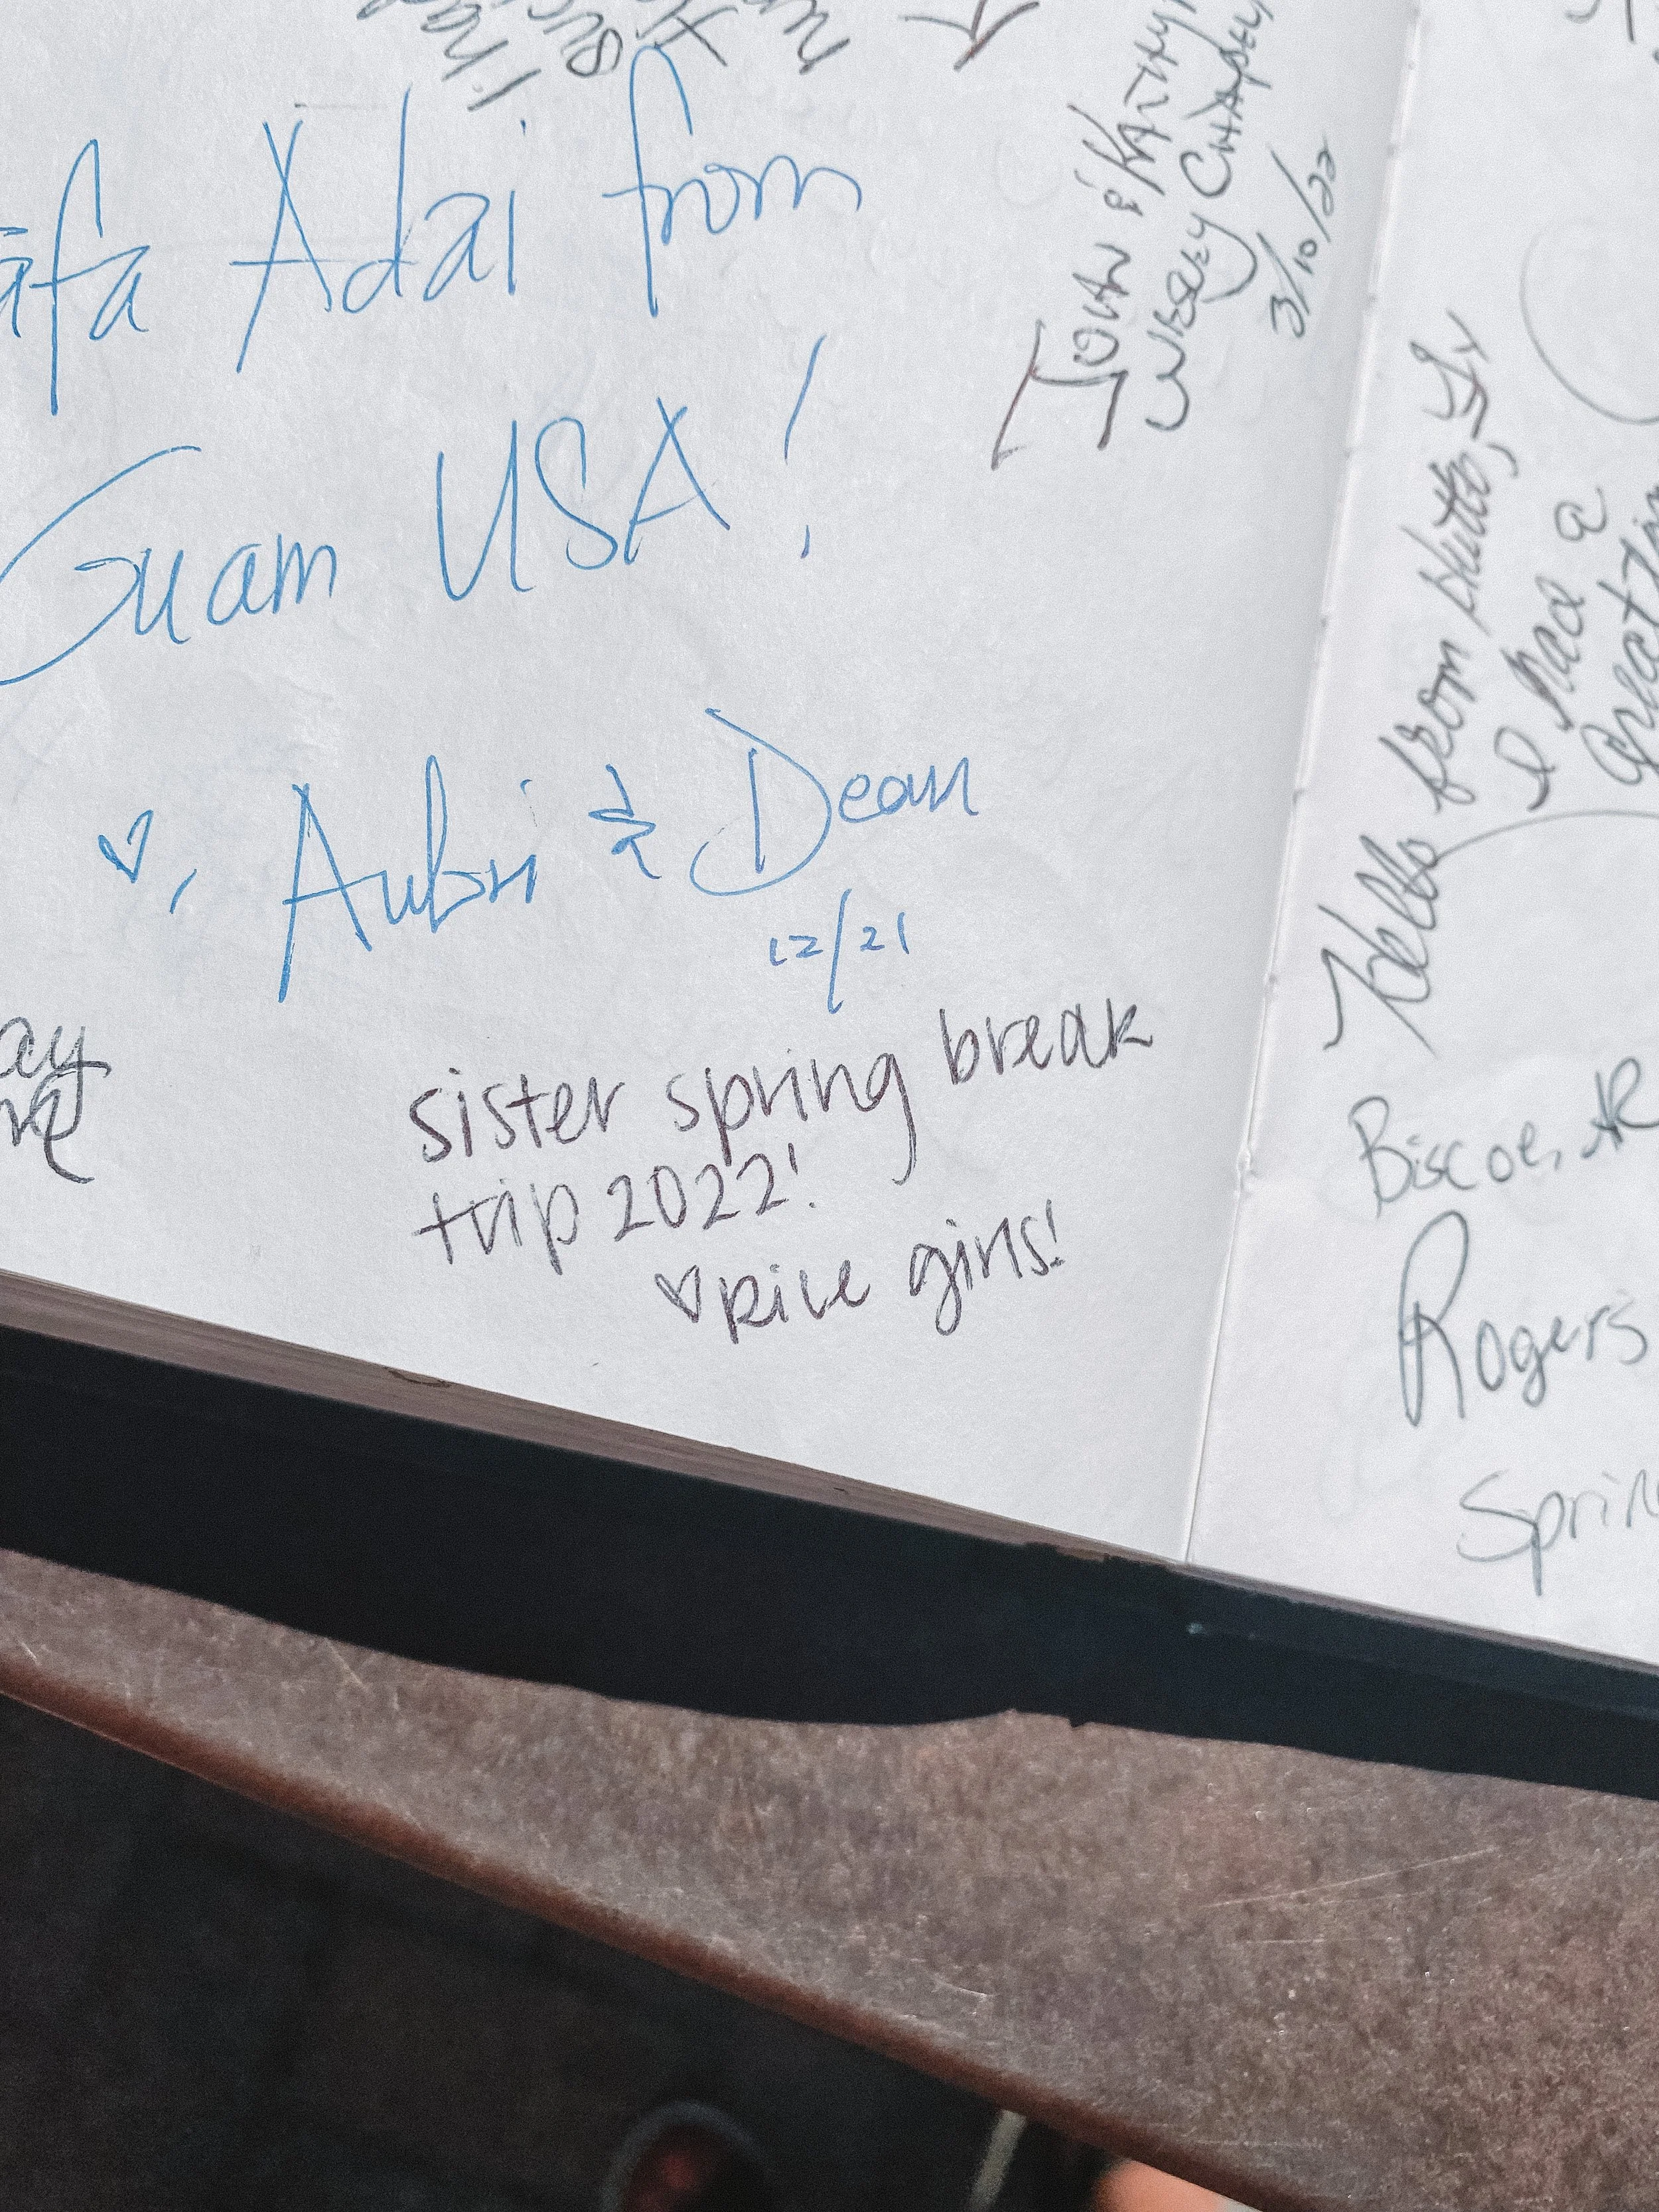 I had
Adai from
Guam USA!
♡, Aubri & Dean
12/21
sister spring break
trip 2022!
♡ Rice girls!
JOHN & KATHY
WESLEY CHAPEL,
3/10/22
Hello from Hutto, Tx
I had a
great
Biscoe, AR
Rogers